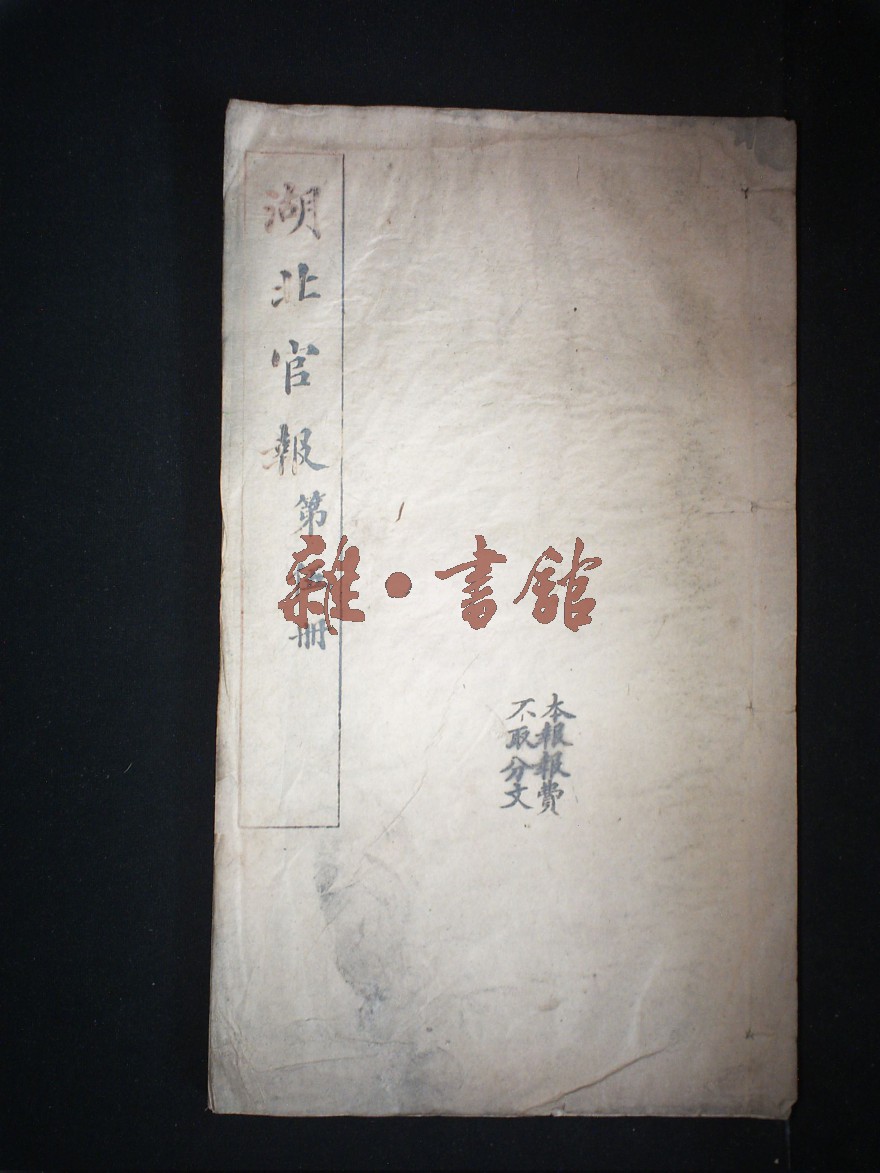 湖北官報
第 冊
雜·書館
本報報費
不取分文